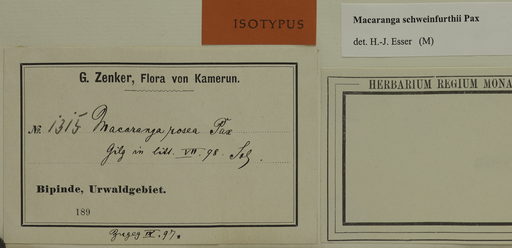 ISOTYPUS
Macaranga schweinfurthii Pax
det. H.-J. Esser (M)
G. Zenker, Flora von Kamerun.
№ 1315 Macaranga rosea Pax
Gilg in litt. VII. 98.
Bipinde, Urwaldgebiet.
189
IX. 97.
HERBARIUM REGIUM MONA